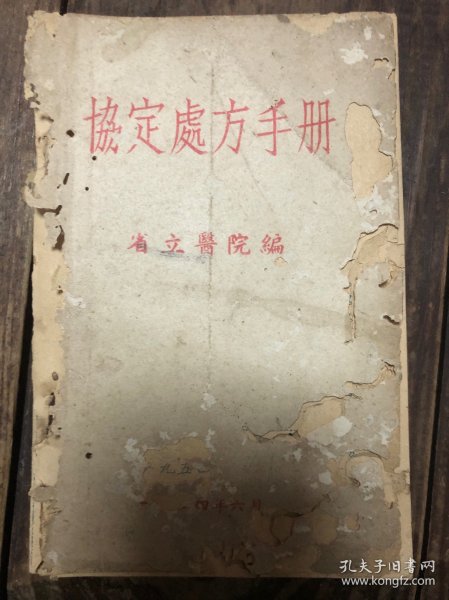 協定處方手册
省立醫院編
九五
四年六月
孔夫子旧書网
www.kongfz.com